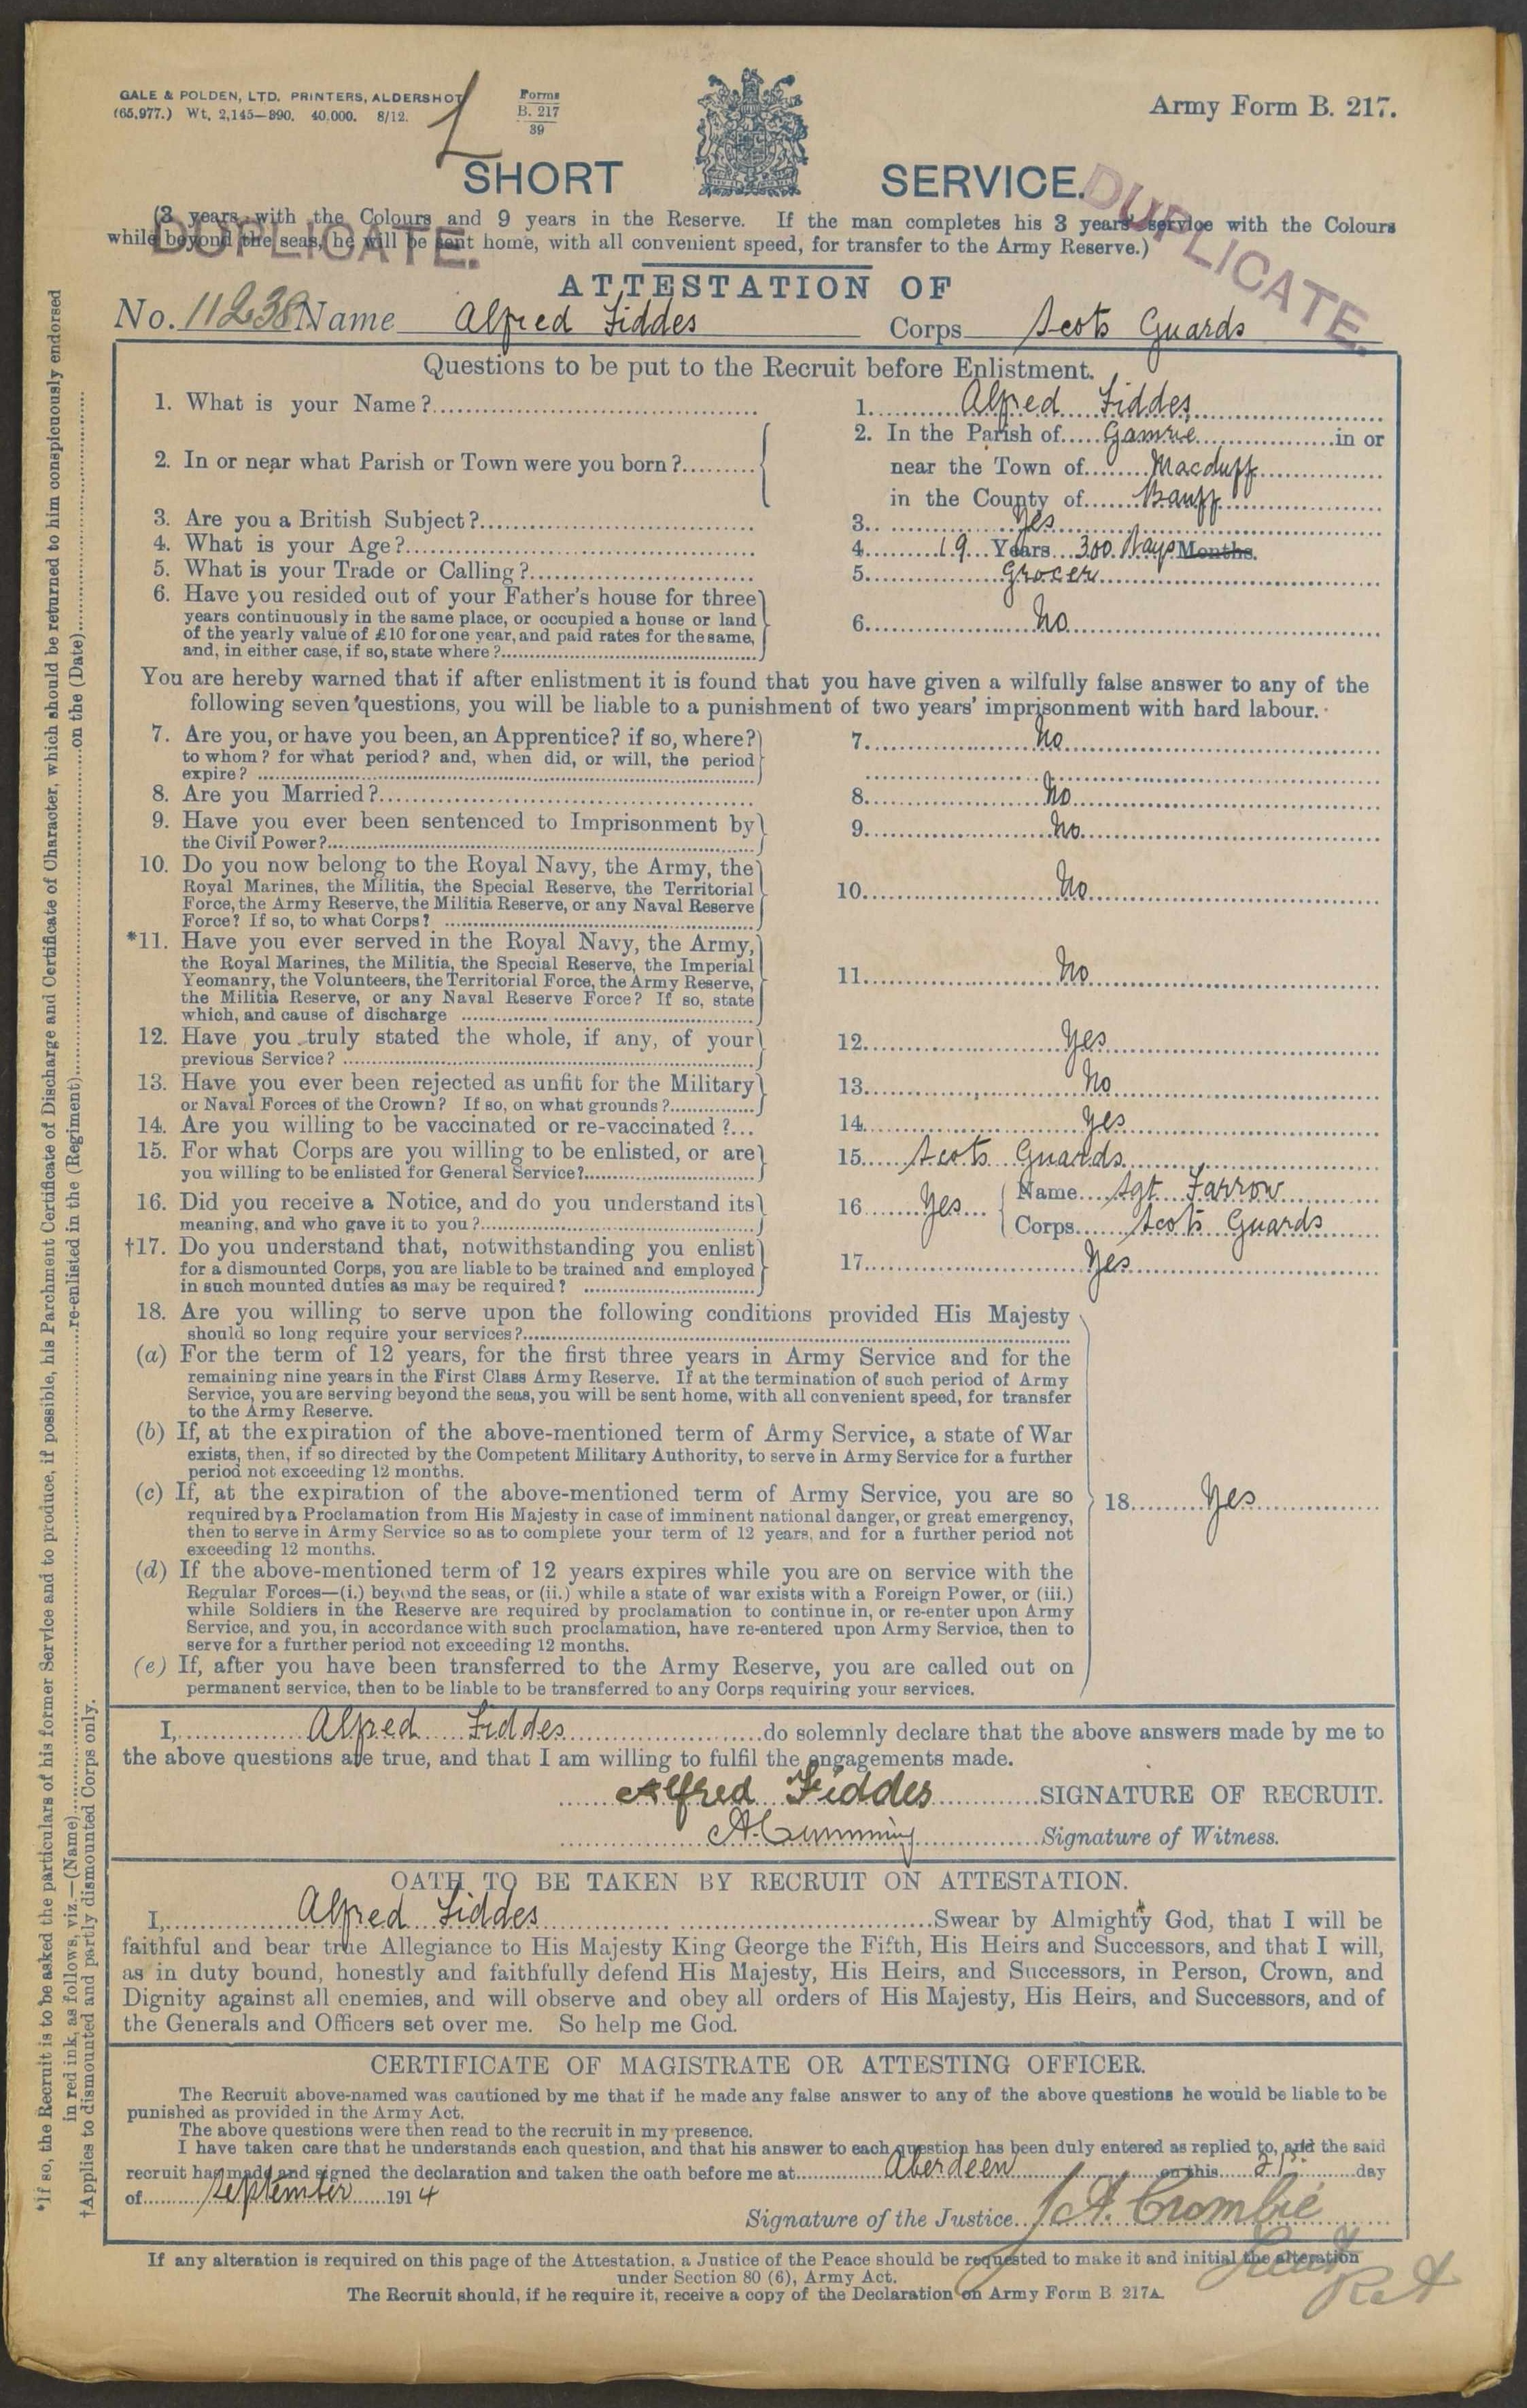 GALE & POLDEN, LTD. PRINTERS, ALDERSHOT
(65,977.) Wt. 2,145—890. 40,000. 8/12.
Forms
B. 217
39
Army Form B. 217.
SHORT SERVICE.
DUPLICATE.
DUPLICATE.
(3 years with the Colours and 9 years in the Reserve. If the man completes his 3 years' service with the Colours
while beyond the seas, he will be sent home, with all convenient speed, for transfer to the Army Reserve.)
ATTESTATION OF
No. 11238 Name Alfred Fiddes Corps Scots Guards
Questions to be put to the Recruit before Enlistment.
1. What is your Name? 1. Alfred Fiddes
2. In or near what Parish or Town were you born? 2. In the Parish of Gamrie in or
near the Town of Macduff
in the County of Banff
3. Are you a British Subject? 3. Yes
4. What is your Age? 4. 19 Years 300 Days Months.
5. What is your Trade or Calling? 5. Grocer
6. Have you resided out of your Father's house for three
years continuously in the same place, or occupied a house or land
of the yearly value of £10 for one year, and paid rates for the same,
and, in either case, if so, state where? 6. No
You are hereby warned that if after enlistment it is found that you have given a wilfully false answer to any of the
following seven questions, you will be liable to a punishment of two years' imprisonment with hard labour.
7. Are you, or have you been, an Apprentice? if so, where? 7. No
to whom? for what period? and, when did, or will, the period
expire?
8. Are you Married? 8. No
9. Have you ever been sentenced to Imprisonment by 9. No
the Civil Power?
10. Do you now belong to the Royal Navy, the Army, the
Royal Marines, the Militia, the Special Reserve, the Territorial 10. No
Force, the Army Reserve, the Militia Reserve, or any Naval Reserve
Force? If so, to what Corps?
*11. Have you ever served in the Royal Navy, the Army,
the Royal Marines, the Militia, the Special Reserve, the Imperial
Yeomanry, the Volunteers, the Territorial Force, the Army Reserve, 11. No
the Militia Reserve, or any Naval Reserve Force? If so, state
which, and cause of discharge
12. Have you truly stated the whole, if any, of your 12. Yes
previous Service?
13. Have you ever been rejected as unfit for the Military 13. No
or Naval Forces of the Crown? If so, on what grounds?
14. Are you willing to be vaccinated or re-vaccinated? 14. Yes
15. For what Corps are you willing to be enlisted, or are 15. Scots Guards
you willing to be enlisted for General Service?
16. Did you receive a Notice, and do you understand its 16. Yes Name Sgt Farrow
meaning, and who gave it to you? Corps Scots Guards
†17. Do you understand that, notwithstanding you enlist
for a dismounted Corps, you are liable to be trained and employed 17. Yes
in such mounted duties as may be required?
18. Are you willing to serve upon the following conditions provided His Majesty
should so long require your services?
(a) For the term of 12 years, for the first three years in Army Service and for the
remaining nine years in the First Class Army Reserve. If at the termination of such period of Army
Service, you are serving beyond the seas, you will be sent home, with all convenient speed, for transfer
to the Army Reserve.
(b) If, at the expiration of the above-mentioned term of Army Service, a state of War
exists, then, if so directed by the Competent Military Authority, to serve in Army Service for a further
period not exceeding 12 months.
(c) If, at the expiration of the above-mentioned term of Army Service, you are so 18. Yes
required by a Proclamation from His Majesty in case of imminent national danger, or great emergency,
then to serve in Army Service so as to complete your term of 12 years, and for a further period not
exceeding 12 months.
(d) If the above-mentioned term of 12 years expires while you are on service with the
Regular Forces—(i.) beyond the seas, or (ii.) while a state of war exists with a Foreign Power, or (iii.)
while Soldiers in the Reserve are required by proclamation to continue in, or re-enter upon Army
Service, and you, in accordance with such proclamation, have re-entered upon Army Service, then to
serve for a further period not exceeding 12 months.
(e) If, after you have been transferred to the Army Reserve, you are called out on
permanent service, then to be liable to be transferred to any Corps requiring your services.
I, Alfred Fiddes do solemnly declare that the above answers made by me to
the above questions are true, and that I am willing to fulfil the engagements made.
Alfred Fiddes SIGNATURE OF RECRUIT.
A. Cumming Signature of Witness.
OATH TO BE TAKEN BY RECRUIT ON ATTESTATION.
I, Alfred Fiddes Swear by Almighty God, that I will be
faithful and bear true Allegiance to His Majesty King George the Fifth, His Heirs and Successors, and that I will,
as in duty bound, honestly and faithfully defend His Majesty, His Heirs, and Successors, in Person, Crown, and
Dignity against all enemies, and will observe and obey all orders of His Majesty, His Heirs, and Successors, and of
the Generals and Officers set over me. So help me God.
CERTIFICATE OF MAGISTRATE OR ATTESTING OFFICER.
The Recruit above-named was cautioned by me that if he made any false answer to any of the above questions he would be liable to be
punished as provided in the Army Act.
The above questions were then read to the recruit in my presence.
I have taken care that he understands each question, and that his answer to each question has been duly entered as replied to, and the said
recruit has made and signed the declaration and taken the oath before me at Aberdeen on this 21st day
of September 1914
Signature of the Justice A. Crombie
If any alteration is required on this page of the Attestation, a Justice of the Peace should be requested to make it and initial the alteration
under Section 80 (6), Army Act.
The Recruit should, if he require it, receive a copy of the Declaration on Army Form B 217A.
*If so, the Recruit is to be asked the particulars of his former Service and to produce, if possible, his Parchment Certificate of Discharge and Certificate of Character, which should be returned to him conspicuously endorsed
in red ink, as follows, viz.—(Name) re-enlisted in the (Regiment) on the (Date)
†Applies to dismounted and partly dismounted Corps only.